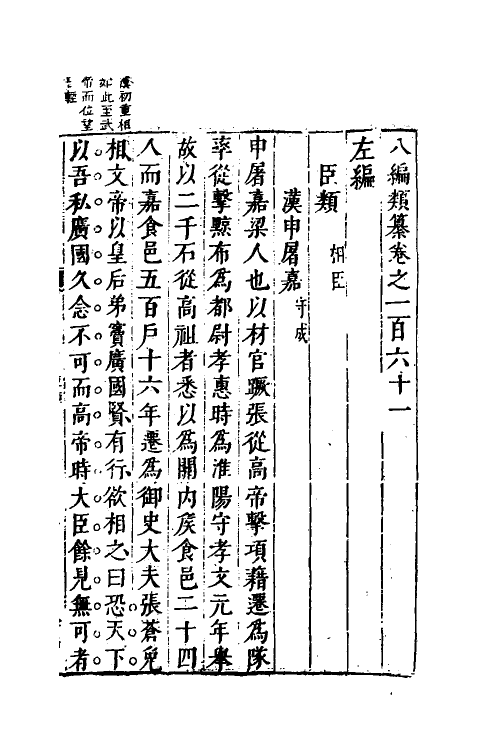 八編類纂卷之一百六十一
左編
臣類 相臣
漢申屠嘉 守成
申屠嘉梁人也以材官蹶張從高帝擊項籍遷爲隊
率從擊黥布爲都尉孝惠時爲淮陽守孝文元年舉
故以二千石從高祖者悉以爲關內矦食邑二十四
人而嘉食邑五百戶十六年遷爲御史大夫張蒼免
相文帝以皇后弟竇廣國賢有行欲相之曰恐天下
以吾私廣國久念不可而高帝時大臣餘見無可者
漢初重相
如此至武
帝而位望
輕